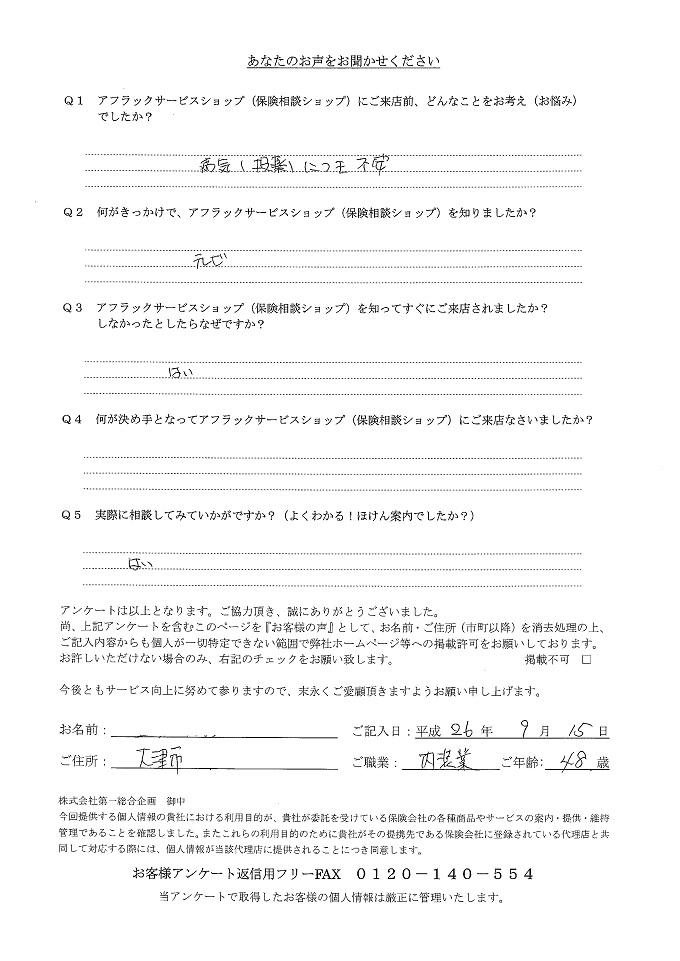 あなたのお声をお聞かせください
Q1 アフラックサービスショップ（保険相談ショップ）にご来店前、どんなことをお考え（お悩み）
でしたか？
病気（投薬）につき不安
Q2 何がきっかけで、アフラックサービスショップ（保険相談ショップ）を知りましたか？
テレビ
Q3 アフラックサービスショップ（保険相談ショップ）を知ってすぐにご来店されましたか？
しなかったとしたらなぜですか？
はい
Q4 何が決め手となってアフラックサービスショップ（保険相談ショップ）にご来店なさいましたか？
Q5 実際に相談してみていかがですか？（よくわかる！ほけん案内でしたか？）
はい
アンケートは以上となります。ご協力頂き、誠にありがとうございました。
尚、上記アンケートを含むこのページを『お客様の声』として、お名前・ご住所（市町以降）を消去処理の上、
ご記入内容からも個人が一切特定できない範囲で弊社ホームページ等への掲載許可をお願いしております。
お許しいただけない場合のみ、右記のチェックをお願い致します。 掲載不可 □
今後ともサービス向上に努めて参りますので、末永くご愛顧頂きますようお願い申し上げます。
お名前： ご記入日：平成 26 年 9 月 15 日
ご住所： 大津市 ご職業： 内装業 ご年齢： 48 歳
株式会社第一総合企画 御中
今回提供する個人情報の貴社における利用目的が、貴社が委託を受けている保険会社の各種商品やサービスの案内・提供・維持
管理であることを確認しました。またこれらの利用目的のために貴社がその提携先である保険会社に登録されている代理店と共
同して対応する際には、個人情報が当該代理店に提供されることにつき同意します。
お客様アンケート返信用フリーFAX 0120－140－554
当アンケートで取得したお客様の個人情報は厳正に管理いたします。